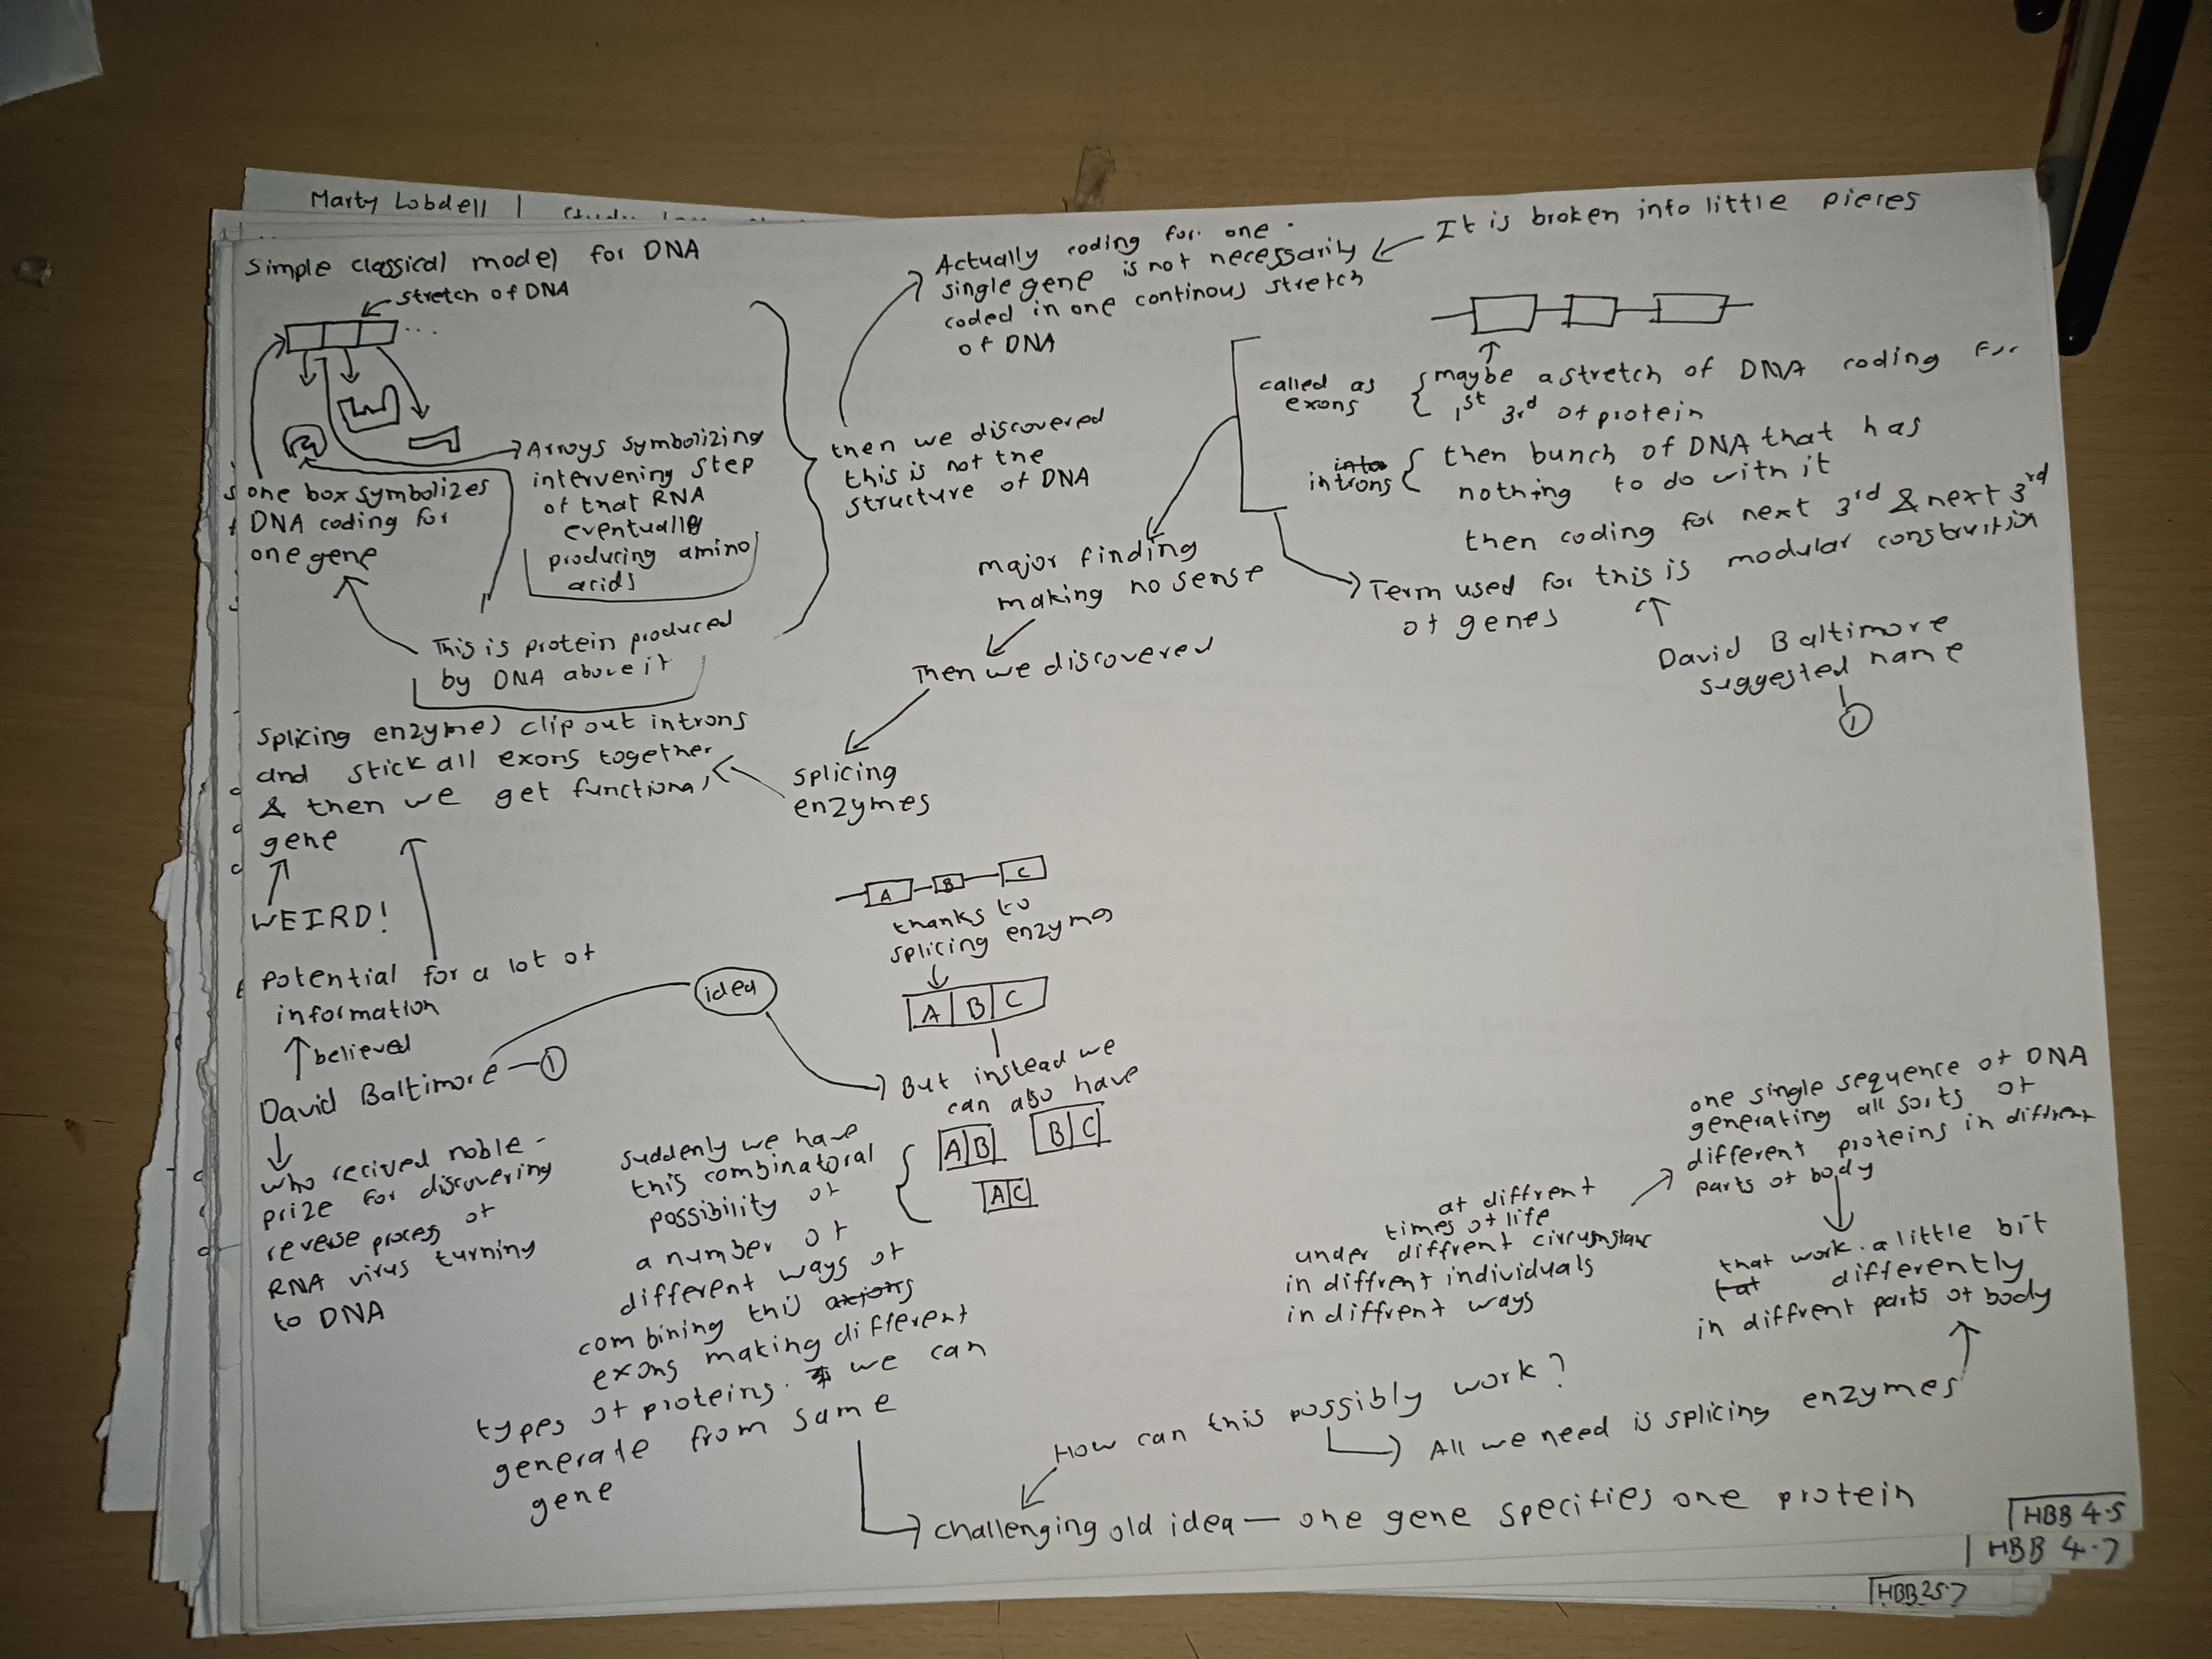 Marty Lobdell |
Simple classical model for DNA
stretch of DNA
one box symbolizes
DNA coding for
one gene
Arrows symbolizing
intervening step
of that RNA
eventually
producing amino
acids
This is protein produced
by DNA above it
then we discovered
this is not the
structure of DNA
Actually coding for one
single gene is not necessarily
coded in one continous stretch
of DNA
It is broken into little pieces
called as
exons
maybe a stretch of DNA coding for
1st 3rd of protein
introns
then bunch of DNA that has
nothing to do with it
then coding for next 3rd & next 3rd
Term used for this is modular construction
of genes
David Baltimore
suggested name
1
major finding
making no sense
Then we discovered
splicing
enzymes
splicing enzymes clip out introns
and stick all exons together
& then we get functional
gene
WEIRD!
potential for a lot of
information
believed
David Baltimore - 1
who recived noble -
prize for discovering
reverse process of
RNA virus turning
to DNA
idea
A B C
thanks to
splicing enzymes
A B C
But instead we
can also have
A B B C
A C
suddenly we have
this combinatoral
possibility of
a number of
different ways of
combining this
exons making different
types of proteins. we can
generate from same
gene
challenging old idea — one gene specifies one protein
How can this possibly work?
All we need is splicing enzymes
at diffrent
times of life
under diffrent circumstance
in diffrent individuals
in diffrent ways
one single sequence of DNA
generating all sorts of
different proteins in diffrent
parts of body
that work a little bit
differently
in diffrent parts of body
HBB 4.5
HBB 4.7
HBB 25.7